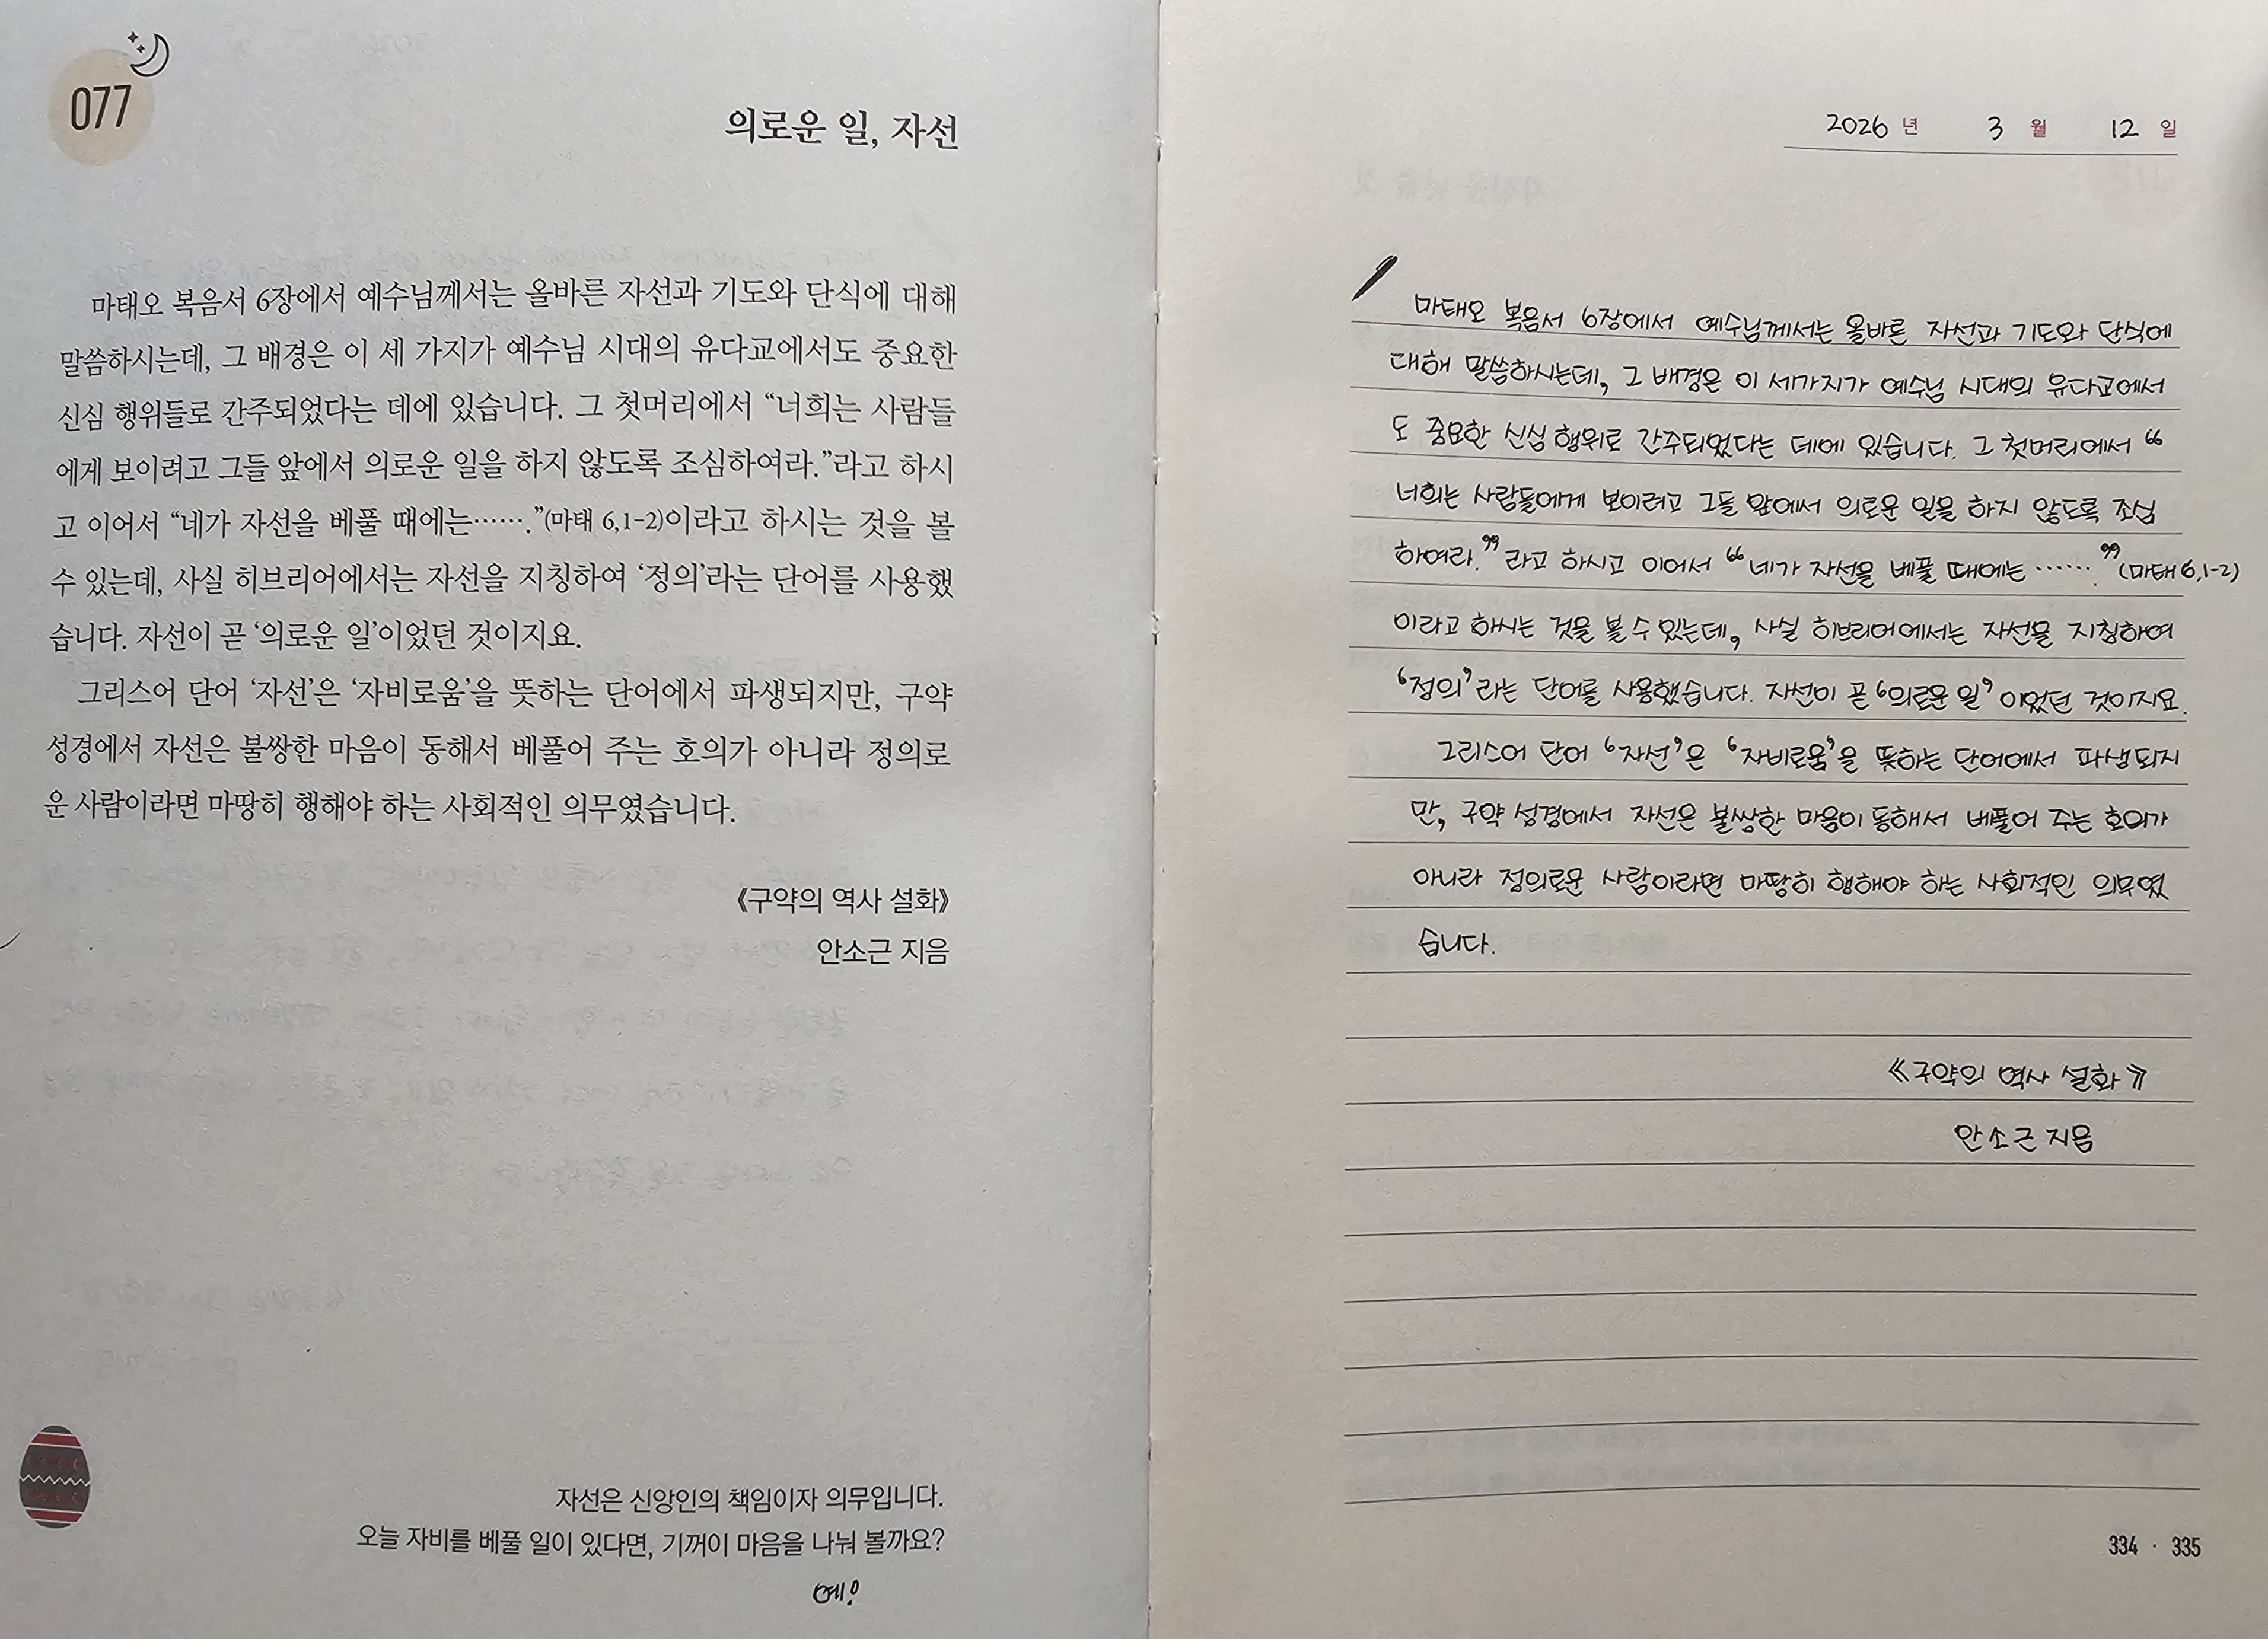 077
의로운 일, 자선
마태오 복음서 6장에서 예수님께서는 올바른 자선과 기도와 단식에 대해
말씀하시는데, 그 배경은 이 세 가지가 예수님 시대의 유다교에서도 중요한
신심 행위들로 간주되었다는 데에 있습니다. 그 첫머리에서 “너희는 사람들
에게 보이려고 그들 앞에서 의로운 일을 하지 않도록 조심하여라.”라고 하시
고 이어서 “네가 자선을 베풀 때에는…….”(마태 6,1-2)이라고 하시는 것을 볼
수 있는데, 사실 히브리어에서는 자선을 지칭하여 ‘정의’라는 단어를 사용했
습니다. 자선이 곧 ‘의로운 일’이었던 것이지요.
그리스어 단어 ‘자선’은 ‘자비로움’을 뜻하는 단어에서 파생되지만, 구약
성경에서 자선은 불쌍한 마음이 동해서 베풀어 주는 호의가 아니라 정의로
운 사람이라면 마땅히 행해야 하는 사회적인 의무였습니다.
《구약의 역사 설화》
안소근 지음
자선은 신앙인의 책임이자 의무입니다.
오늘 자비를 베풀 일이 있다면, 기꺼이 마음을 나눠 볼까요?
예!
2026 년 3 월 12 일
마태오 복음서 6장에서 예수님께서는 올바른 자선과 기도와 단식에
대해 말씀하시는데, 그 배경은 이 세가지가 예수님 시대의 유다교에서
도 중요한 신심 행위로 간주되었다는 데에 있습니다. 그 첫머리에서 “
너희는 사람들에게 보이려고 그들 앞에서 의로운 일을 하지 않도록 조심
하여라.”라고 하시고 이어서 “네가 자선을 베풀 때에는…….”(마태 6,1-2)
이라고 하시는 것을 볼 수 있는데, 사실 히브리어에서는 자선을 지칭하여
‘정의’라는 단어를 사용했습니다. 자선이 곧 ‘의로운 일’이었던 것이지요.
그리스어 단어 ‘자선’은 ‘자비로움’을 뜻하는 단어에서 파생되지
만, 구약 성경에서 자선은 불쌍한 마음이 동해서 베풀어 주는 호의가
아니라 정의로운 사람이라면 마땅히 행해야 하는 사회적인 의무였
습니다.
《구약의 역사 설화》
안소근 지음
334 · 335